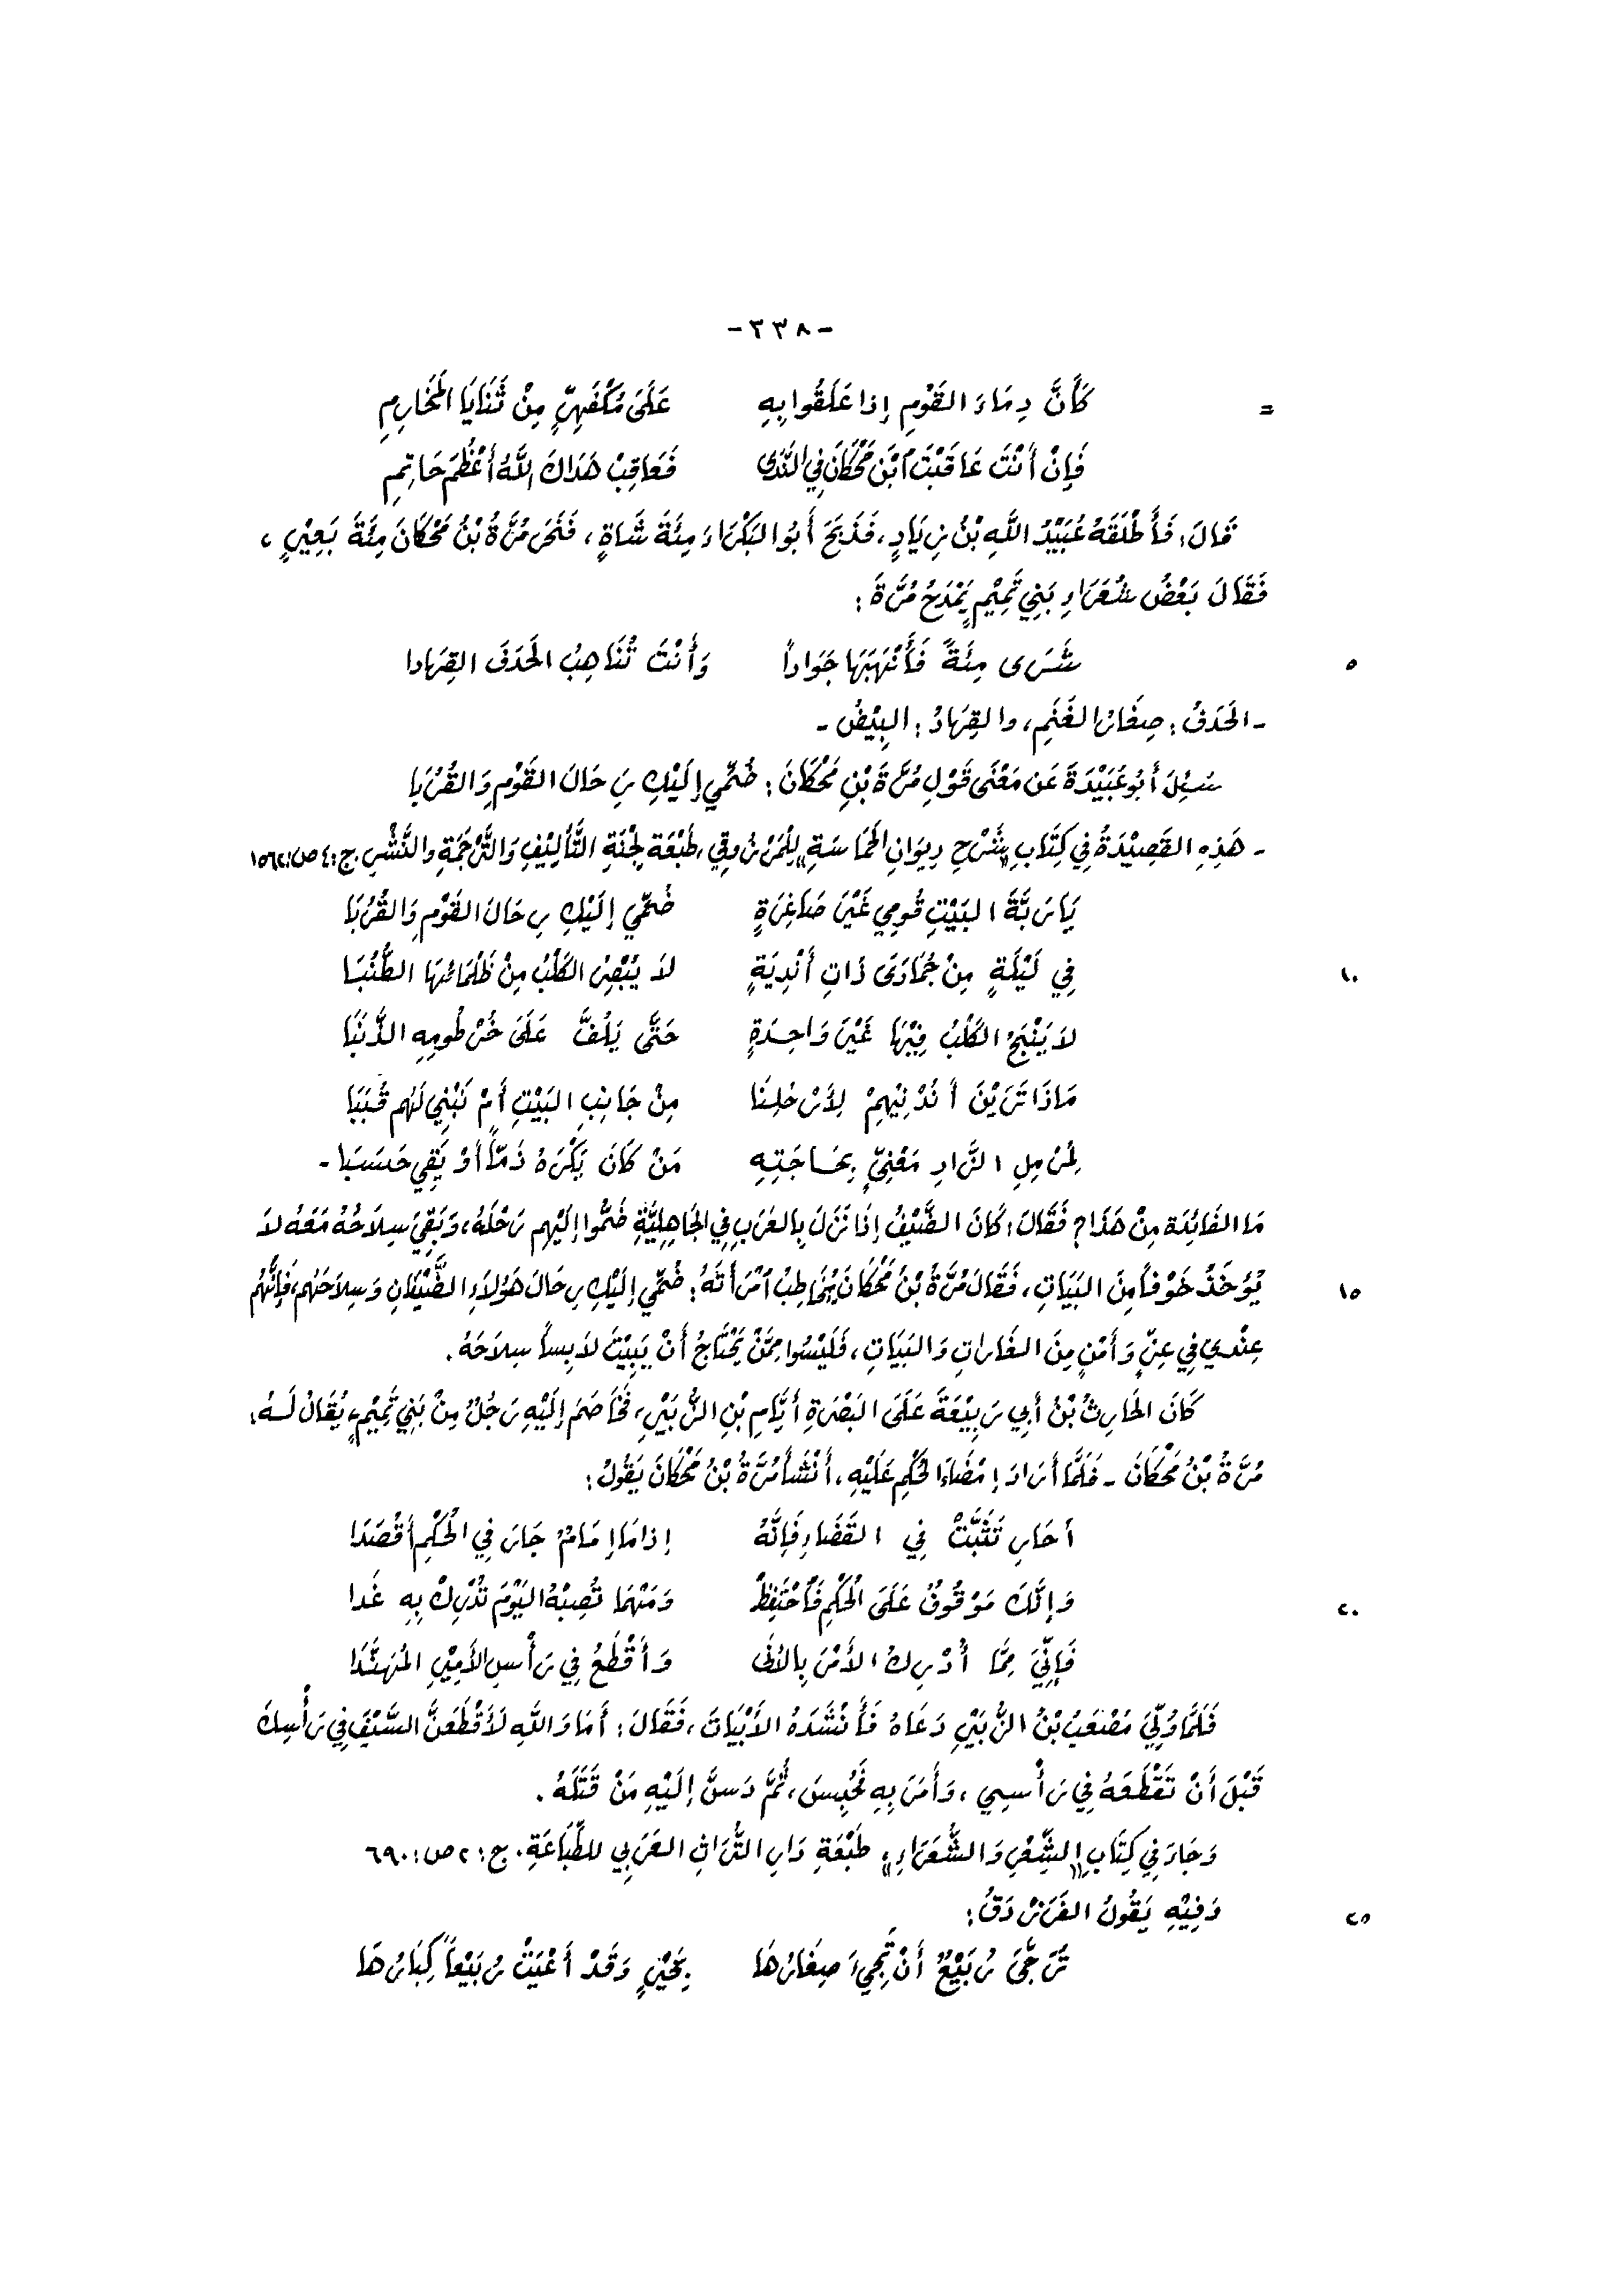 -٣٣٨-
= كَأَنَّ دِمَاءَ القَوْمِ إِذا عَلَقُوا بِهِ عَلَى مُكْفَهِرٍّ مِنْ ثَنَايَا المَخَارِمِ
فَإِنْ أَنْتَ عَاقَبْتَ ابْنَ مَحْكَانَ فِي النَّدَى فَعَاقِبْ هَدَاكَ اللَّهُ أَعْظُمَ حَاتِمِ
قَالَ: فَأَطْلَقَهُ عُبَيْدُ اللَّهِ بْنُ زِيَادٍ، فَذَبَحَ أَبُو البَكْرَاءِ مِئَةَ شَاةٍ، فَنَحَرَ مُرَّةُ بْنُ مَحْكَانَ مِئَةَ بَعِيْرٍ،
فَقَالَ بَعْضُ شُعَرَاءِ بَنِي تَمِيْمٍ يَمْدَحُ مُرَّةَ:
٥ شَرَى مِئَةً فَأَنْهَبَهَا جَوَاداً وَأَنْتَ تُنَاهِبُ الحَدَفَ القِهَادا
- الحَدَفُ: صِغَارُ الغَنَمِ، والقِهَادُ: البِيْضُ -
سُئِلَ أَبُو عُبَيْدَةَ عَنْ مَعْنَى قَوْلِ مُرَّةَ بْنِ مَحْكَانَ: ضُمِّي إِلَيْكِ رِحَالَ القَوْمِ وَالقُرُبَا
- هَذِهِ القَصِيْدَةُ فِي كِتَابِ «شَرْحِ دِيوَانِ الحَمَاسَةِ» لِلْمَرْزُوقِي، طَبْعَة لَجْنَةِ التَّأْلِيْفِ وَالتَّرْجَمَةِ والنَّشْرِ ج: ٤ ص: ١٥٦٢
يَا رَبَّةَ البَيْتِ قُومِي غَيْرَ صَاغِرَةٍ ضُمِّي إِلَيْكِ رِحَالَ القَوْمِ وَالقُرُبَا
١٠ فِي لَيْلَةٍ مِنْ جُمَادَى ذَاتِ أَنْدِيَةٍ لاَ يُبْصِرُ الكَلْبُ مِنْ ظَلْمَائِهَا الطُّنُبَا
لاَ يَنْبَحُ الكَلْبُ فِيْهَا غَيْرَ وَاحِدَةٍ حَتَّى يَلُفَّ عَلَى خُرْطُومِهِ الذَّنَبَا
مَاذَا تَرَيْنَ أَنُدْنِيْهِمْ لِأَرْحُلِنَا مِنْ جَانِبِ البَيْتِ أَمْ نَبْنِي لَهُم قُبَبَا
لِمُرْمِلِ الزَّادِ مَعْنِيٍّ بِحَاجَتِهِ مَنْ كَانَ يَكْرَهُ ذَمّاً أَوْ يَقِي حَسَبَا -
مَا الفَائِدَة مِنْ هَذَا؟ فَقَالَ: كَانَ الضَّيْفُ إِذَا نَزَلَ بِالعَرَبِ فِي الجَاهِلِيَّةِ ضَمُّوا إِلَيْهِم رَحْلَهُ، وَبَقِيَ سِلاَحُهُ مَعَهُ لاَ
١٥ يُؤخَذُ خَوْفاً مِنَ البَيَاتِ، فَقَالَ مُرَّةُ بْنُ مَحْكَانَ يُخَاطِبُ امْرَأَتَهُ: ضُمِّي إِلَيْكِ رِحَالَ هَؤُلاَءِ الضِّيْفَانِ وَسِلاَحَهُم، فَإِنَّهُم
عِنْدِي فِي عِزٍّ وَأَمْنٍ مِنَ الغَارَاتِ وَالبَيَاتِ، فَلَيْسُوا مِمَّنْ يَحْتَاجُ أَنْ يَبِيْتَ لاَبِساً سِلاَحَهُ.
كَانَ الحَارِثُ بْنُ أَبِي رَبِيْعَةَ عَلَى البَصْرَةِ أَيَّامِ بْنِ الزُّبَيْرِ، فَخَاصَمَ إِلَيْهِ رَجُلٌ مِنْ بَنِي تَمِيْمٍ، يُقَالُ لَهُ:
مُرَّةُ بْنُ مَحْكَانَ - فَلَمَّا أَرَادَ إِمْضَاءَ الحُكْمِ عَلَيْهِ، أَنْشَأَ مُرَّةُ بْنُ مَحْكَانَ يَقُولُ:
أَحَارِ تَثَبَّتْ فِي القَضَاءِ فَإِنَّهُ إِذا مَا إِمَامٌ جَارَ فِي الحُكْمِ أَقْصَدَا
٢٠ وَإِنَّكَ مَوْقُوفٌ عَلَى الحُكْمِ فَاحْتَفِظْ وَمَهْمَا تُصِبْهُ اليَوْمَ تُدْرِكْ بِهِ غَدا
فَإِنِّيَ مِمَّا أُدْرِكُ الأَمْرَ بِالأَنَى وَأَقْطَعُ فِي رَأْسِ الأَمِيْرِ المُهَنَّدَا
فَلَمَّا وُلِّيَ مُصْعَبُ بْنُ الزُّبَيْرِ دَعَاهُ فَأَنْشَدَهُ الأَبْيَاتَ، فَقَالَ: أَمَا وَاللَّهِ لَأَقْطَعَنَّ السَّيْفَ فِي رَأْسِكَ
قَبْلَ أَنْ تَقْطَعَهُ فِي رَأْسِي، وَأَمَرَ بِهِ فَحُبِسَ، ثُمَّ دَسَّ إِلَيْهِ مَنْ قَتَلَهُ.
وَجَاءَ فِي كِتَابِ «الشِّعْرِ وَالشُّعَرَاءِ» طَبْعَةِ دَارِ التُّرَاثِ العَرَبِي للطِّبَاعَةِ. ج: ٢ ص: ٦٩٠
٢٥ وَفِيْهِ يَقُولُ الفَرَزْدَقُ:
تَرَجَّى رُبَيْعٌ أَنْ تَجِيءَ صِغَارُهَا بِخَيْرٍ وَقَدْ أَعْيَتْ رُبَيْعاً كِبَارُهَا